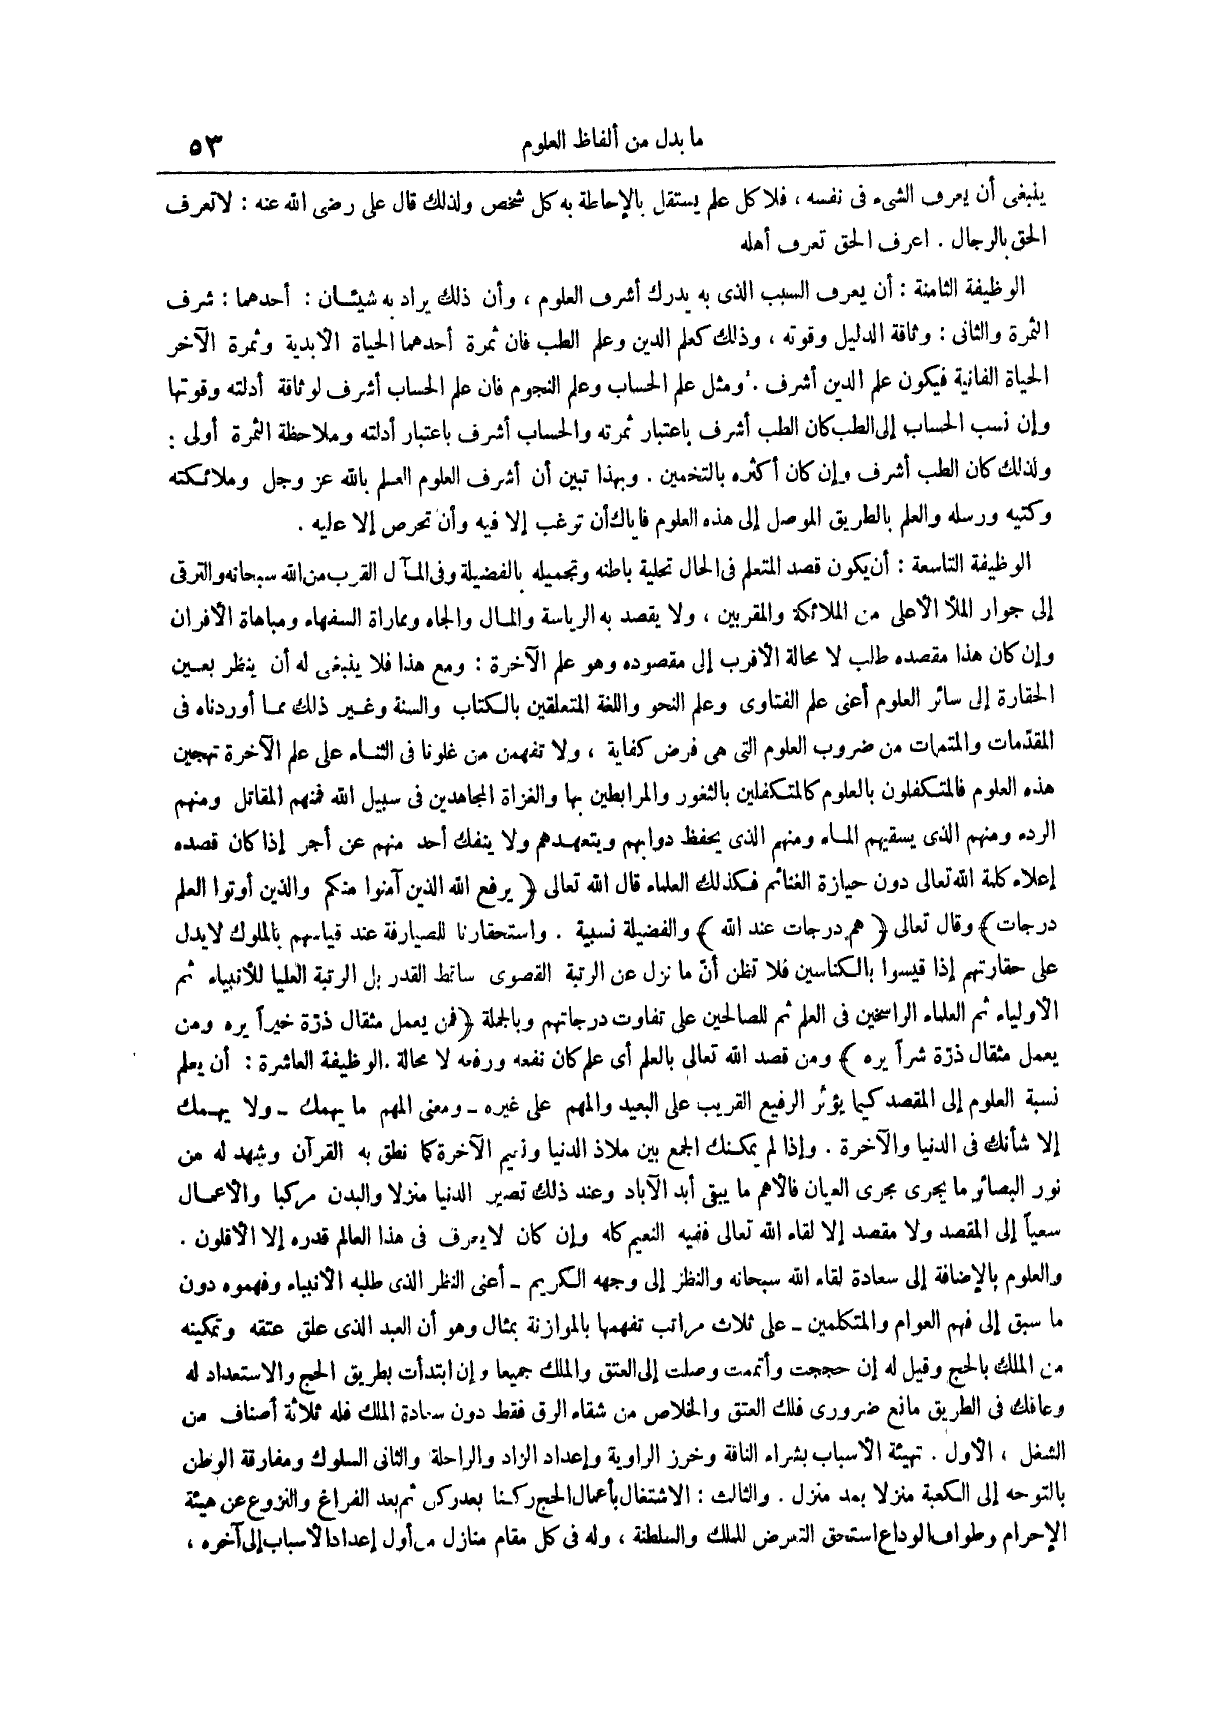 ما بدل من ألفاظ العلوم
٥٣
ينبغى أن يعرف الشىء فى نفسه ، فلا كل علم يستقل بالإحاطة به كل شخص ولذلك قال على رضى الله عنه : لا تعرف
الحق بالرجال . اعرف الحق تعرف أهله
الوظيفة الثامنة : أن يعرف السبب الذى به يدرك أشرف العلوم ، وأن ذلك يراد به شيئان : أحدهما : شرف
الثمرة والثانى : وثاقة الدليل وقوته ، وذلك كعلم الدين وعلم الطب فان ثمرة أحدهما الحياة الأبدية وثمرة الآخر
الحياة الفانية فيكون علم الدين أشرف . ومثل علم الحساب وعلم النجوم فان علم الحساب أشرف لوثاقة أدلته وقوتها
وإن نسب الحساب إلى الطب كان الطب أشرف باعتبار ثمرته والحساب أشرف باعتبار أدلته وملاحظة الثمرة أولى :
ولذلك كان الطب أشرف وإن كان أكثره بالتخمين . وبهذا تبين أن أشرف العلوم العلم بالله عز وجل وملائكته
وكتبه ورسله والعلم بالطريق الموصل إلى هذه العلوم فاياك أن ترغب إلا فيه وأن تحرص إلا عليه .
الوظيفة التاسعة : أن يكون قصد المتعلم فى الحال تحلية باطنه وتجميله بالفضيلة وفى المآل القرب من الله سبحانه والترقى
إلى جوار الملأ الأعلى من الملائكة والمقربين ، ولا يقصد به الرياسة والمال والجاه ومماراة السفهاء ومباهاة الأقران
وإن كان هذا مقصده طلب لا محالة الأقرب إلى مقصوده وهو علم الآخرة : ومع هذا فلا ينبغى له أن ينظر بعين
الحقارة إلى سائر العلوم أعنى علم الفتاوى وعلم النحو واللغة المتعلقين بالكتاب والسنة وغير ذلك مما أوردناه فى
المقدّمات والمتمات من ضروب العلوم التى هى فرض كفاية ، ولا تفهمن من غلونا فى الثناء على علم الآخرة تهجين
هذه العلوم فالمتكفلون بالعلوم كالمتكفلين بالثغور والمرابطين بها والغزاة المجاهدين فى سبيل الله فمنهم المقاتل ومنهم
الرده ومنهم الذى يسقيهم الماء ومنهم الذى يحفظ دوابهم ويتعهدهم ولا ينفك أحد منهم عن أجر إذا كان قصده
إعلاء كلمة الله تعالى دون حيازة الغنائم فكذلك العلماء قال الله تعالى ﴿ يرفع الله الذين آمنوا منكم والذين أوتوا العلم
درجات﴾ وقال تعالى ﴿ هم درجات عند الله ﴾ والفضيلة نسبية . واستحقارنا للصيارفة عند قياسهم بالملوك لا يدل
على حقارتهم إذا قيسوا بالكناسين فلا تظن أنّ ما نزل عن الرتبة القصوى ساقط القدر بل الرتبة العليا للأنبياء ثم
الأولياء ثم العلماء الراسخين فى العلم ثم للصالحين على تفاوت درجاتهم وبالجملة ﴿فمن يعمل مثقال ذرّة خيراً يره ومن
يعمل مثقال ذرّة شراً يره ﴾ ومن قصد الله تعالى بالعلم أى علم كان نفعه ورفعه لا محالة .الوظيفة العاشرة : أن يعلم
نسبة العلوم إلى المقصد كيما يؤثر الرفيع القريب على البعيد والمهم على غيره ـ ومعنى المهم ما يهمك ـ ولا يهمك
إلا شأنك فى الدنيا والآخرة . وإذا لم يمكنك الجمع بين ملاذ الدنيا ونعيم الآخرة كما نطق به القرآن وشهد له من
نور البصائر ما يجرى مجرى العيان فالأهم ما يبقى أبد الآباد وعند ذلك تصير الدنيا منزلا والبدن مركبا والأعمال
سعياً إلى المقصد ولا مقصد إلا لقاء الله تعالى ففيه النعيم كله وإن كان لا يعرف فى هذا العالم قدره إلا الأقلون .
والعلوم بالإضافة إلى سعادة لقاء الله سبحانه والنظر إلى وجهه الكريم ـ أعنى النظر الذى طلبه الأنبياء وفهموه دون
ما سبق إلى فهم العوام والمتكلمين ـ على ثلاث مراتب تفهمها بالموازنة بمثال وهو أن العبد الذى علق عتقه وتمكينه
من الملك بالحج وقيل له إن حججت وأتممت وصلت إلى العتق والملك جميعا وإن ابتدأت بطريق الحج والاستعداد له
وعاقك فى الطريق مانع ضرورى فلك العتق والخلاص من شقاء الرق فقط دون سعادة الملك فله ثلاثة أصناف من
الشغل ، الأول . تهيئة الأسباب بشراء الناقة وخرز الراوية وإعداد الزاد والراحلة والثانى السلوك ومفارقة الوطن
بالتوجه إلى الكعبة منزلا بعد منزل . والثالث : الاشتغال بأعمال الحج ركنا بعد ركن ثم بعد الفراغ والنزوع عن هيئة
الإحرام وطواف الوداع استحق التعرض للملك والسلطنة ، وله فى كل مقام منازل من أول إعداد الأسباب إلى آخره ،